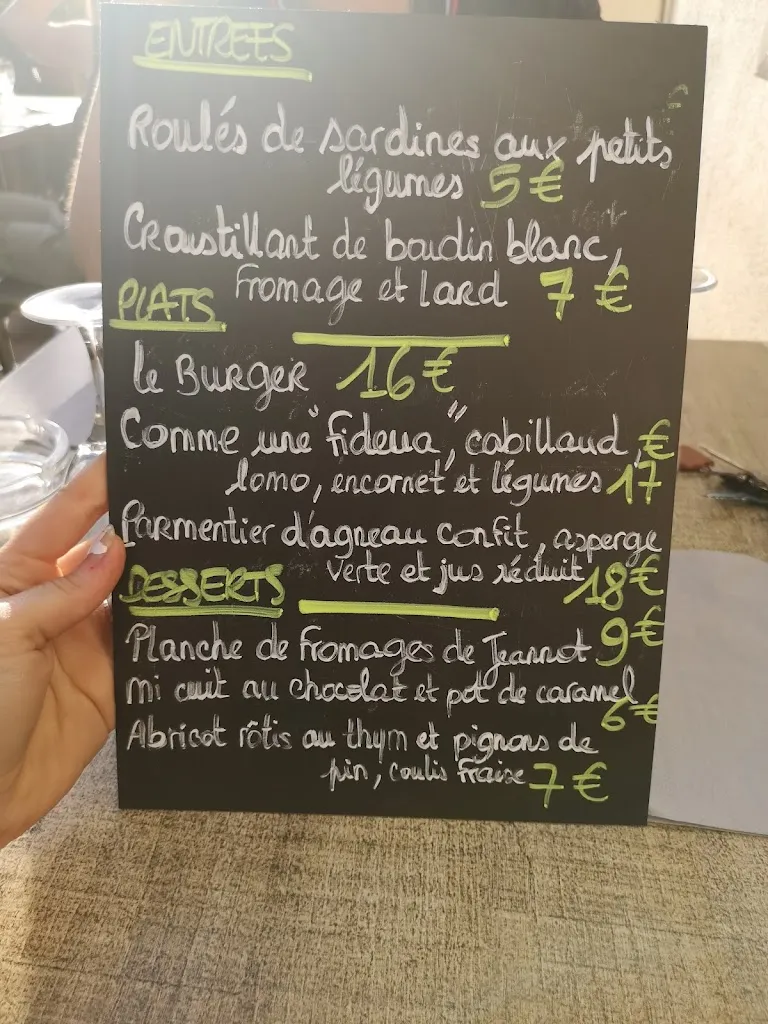 ENTREES
Roulés de sardines aux petits
légumes 5€
Croustillant de boudin blanc,
Fromage et lard 7€
PLATS
le BURGER 16€
Comme une "fideua", cabillaud, €
lomo, encornet et légumes 17
Parmentier d'agneau confit, asperge
verte et jus réduit 18€
DESSERTS
Planche de Fromages de Jeannot 9€
Mi cuit au chocolat et pot de caramel
6€
Abricot rôtis au thym et pignons de
pin, coulis Fraise 7€